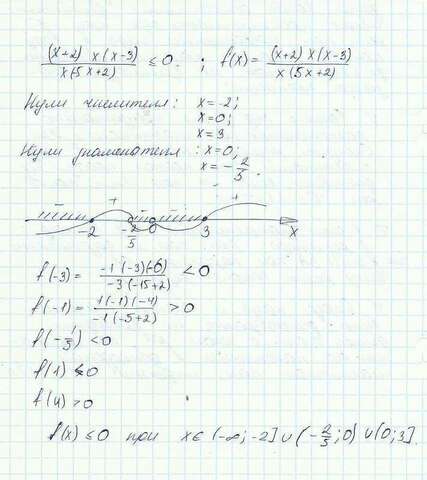 (x+2) x (x-3) / x(5x+2) ≤ 0. ; f(x) = (x+2) x (x-3) / x(5x+2)
Нули числителя: x = -2;
x = 0;
x = 3
Нули знаменателя: x = 0;
x = -2/5.
- + - - +
-2 -2/5 0 3 x
f(-3) = -1(-3)(-6) / -3(-15+2) < 0
f(-1) = 1(-1)(-4) / -1(-5+2) > 0
f(-1/3) < 0
f(1) < 0
f(4) > 0
f(x) ≤ 0 при x ∈ (-∞; -2] ∪ (-2/5; 0) ∪ (0; 3]